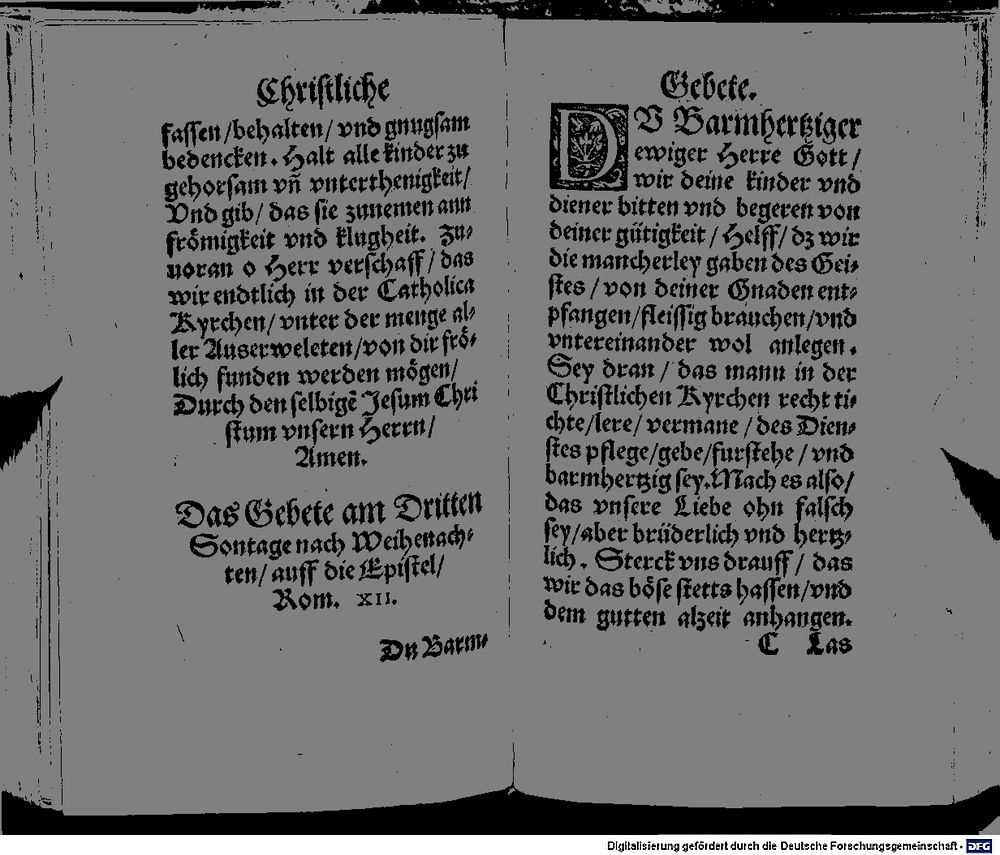 Christliche
fassen/behalten/ vnd gnugsam
bedencken. Halt alle kinder zu
gehorsam vn̄ vnterthenigkeit/
Vnd gib/ das sie zunemen ann
frömigkeit vnd klugheit. Zu-
uoran o Herr verschaff/ das
wir endtlich in der Catholica
Kyrchen/ vnter der menge al-
ler Auserweleten/von dir frö-
lich funden werden mögen/
Durch den selbigē Jesum Chri
stum vnsern Herrn/
Amen.
Das Gebete am Dritten
Sontage nach Weihenach-
ten/ auff die Epistel/
Rom. XII.
Du Barm-
Gebete.
DV Barmhertziger
ewiger Herre Gott/
wir deine kinder vnd
diener bitten vnd begeren von
deiner gütigkeit/ Helff/ dz wir
die mancherley gaben des Gei-
stes/ von deiner Gnaden ent-
pfangen/fleissig brauchen/vnd
vntereinander wol anlegen.
Sey dran/ das mann in der
Christlichen Kyrchen recht ti-
chte/lere/ vermane/ des Dien-
stes pflege/gebe/furstehe/ vnd
barmhertzig sey. Mach es also/
das vnsere Liebe ohn falsch
sey/aber brüderlich vnd hertz-
lich. Sterck vns drauff/ das
wir das böse stetts hassen/vnd
dem gutten alzeit anhangen.
C Las
Digitalisierung gefördert durch die Deutsche Forschungsgemeinschaft - DFG